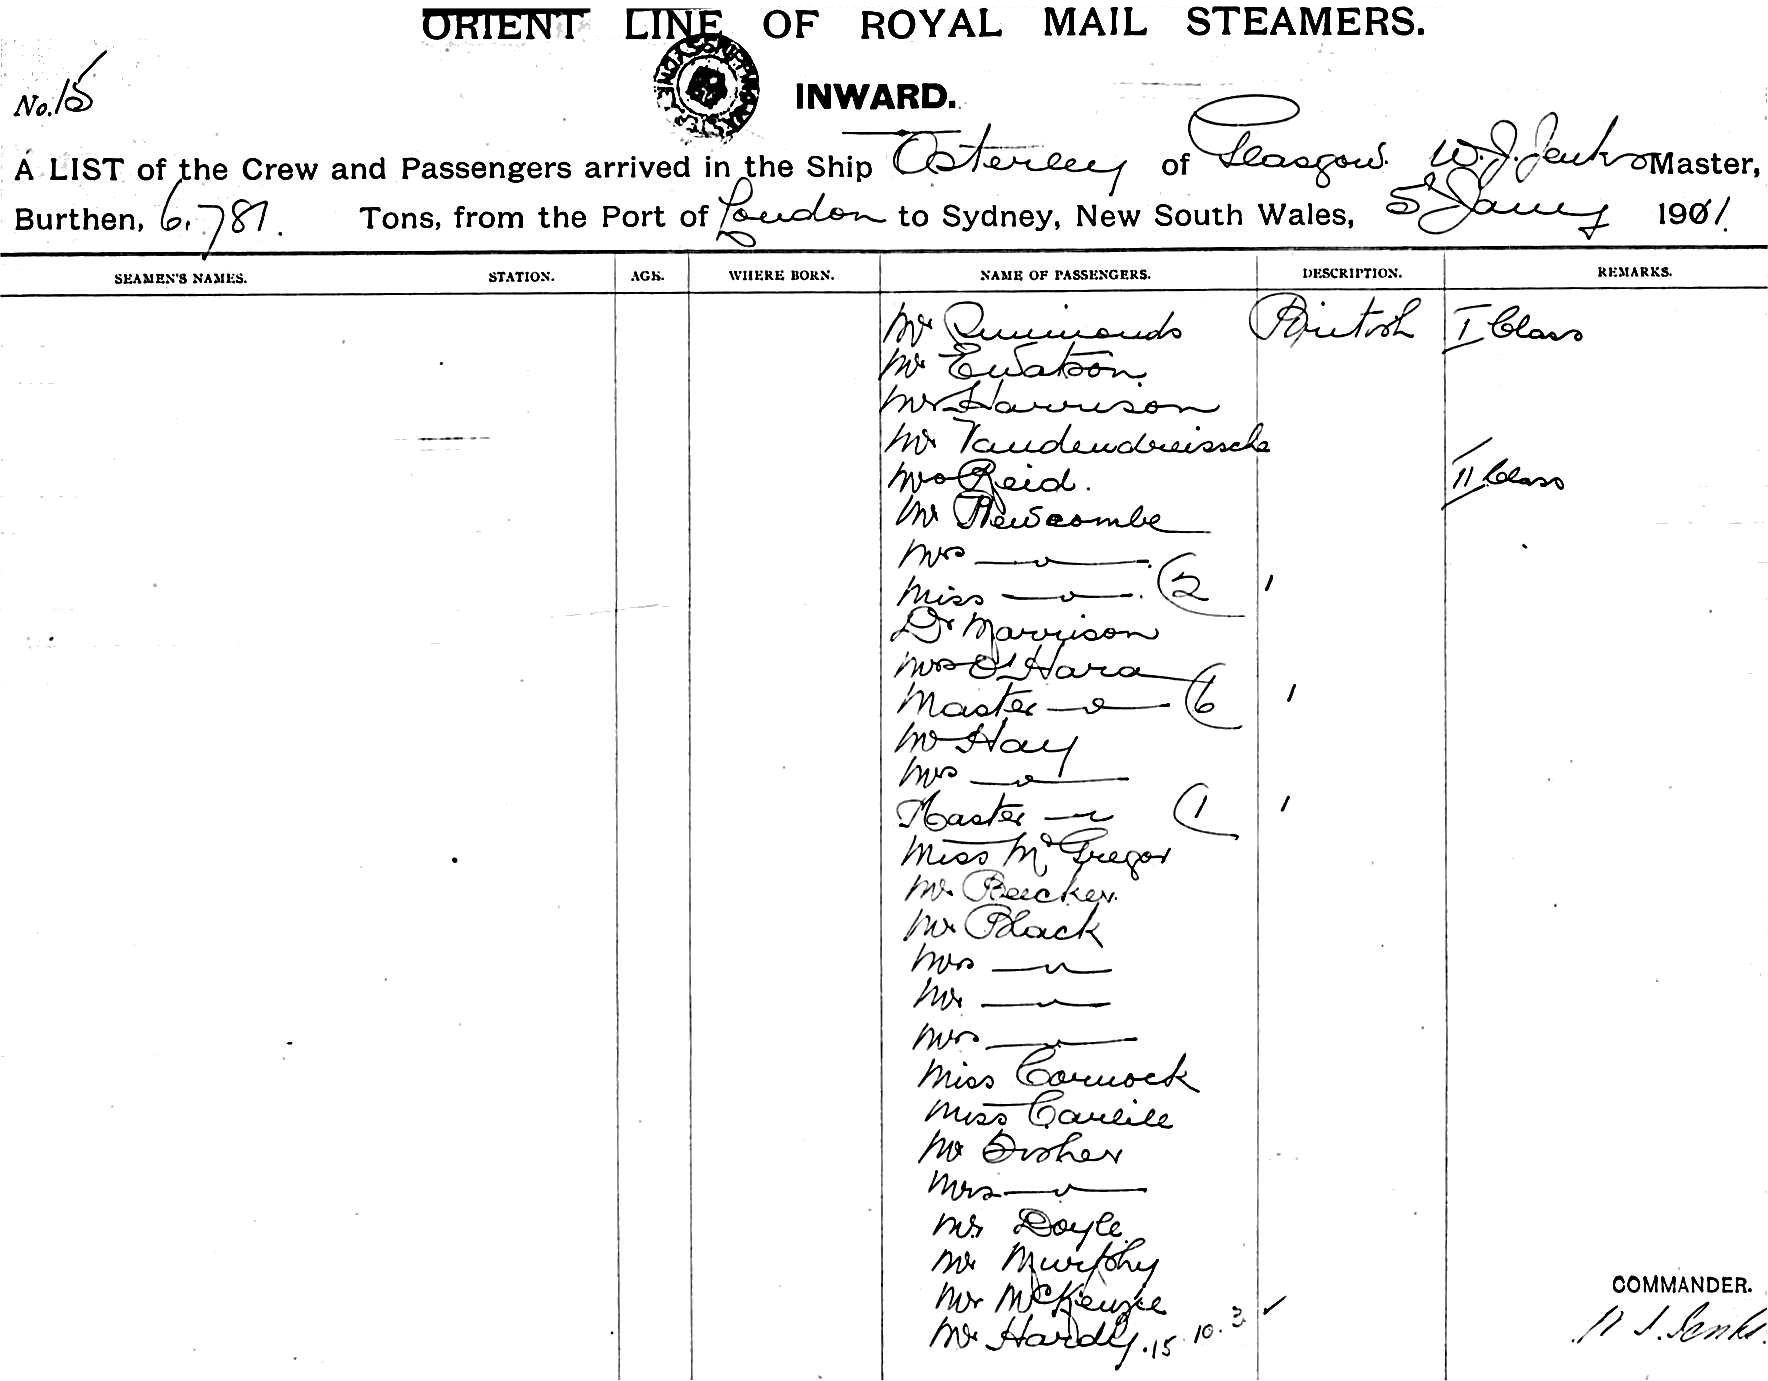 ORIENT LINE OF ROYAL MAIL STEAMERS.
No. 15
INWARD.
A LIST of the Crew and Passengers arrived in the Ship Osterley of Glasgow. W. J. Jenks Master,
Burthen, 6,781. Tons, from the Port of London to Sydney, New South Wales, 5 Jany 1901.
SEAMEN'S NAMES. STATION. AGE. WHERE BORN. NAME OF PASSENGERS. DESCRIPTION. REMARKS.
Mr British I Class
Mr E Watson.
Mr Harrison
Mr Vandendreissche
Mrs Reid. II Class
Mr Newcombe
Mrs —〃—
Miss —〃—. (2 1
Dr Marrison
Mrs O'Hara
Master —〃— (6 1
Mr Hay
Mrs —〃—
Master —〃— (1 1
Miss McGregor
Mr Beecker.
Mr Black
Mrs —〃—
Mr —〃—
Mrs —〃—
Miss Cornock
Miss Carlile
Mr Fisher
Mrs —〃—
Mr Doyle
Mr Murphy
Mr McKenzie
COMMANDER.
Mr Hardly. 15 10. 3 ✓
W. J. Jenks.